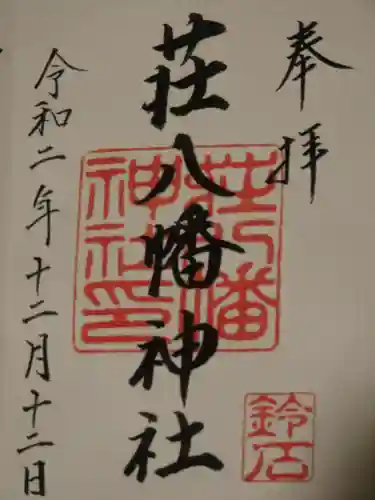 奉拝
荘八幡神社
荘八幡神社印
鈴石
令和二年十二月十二日